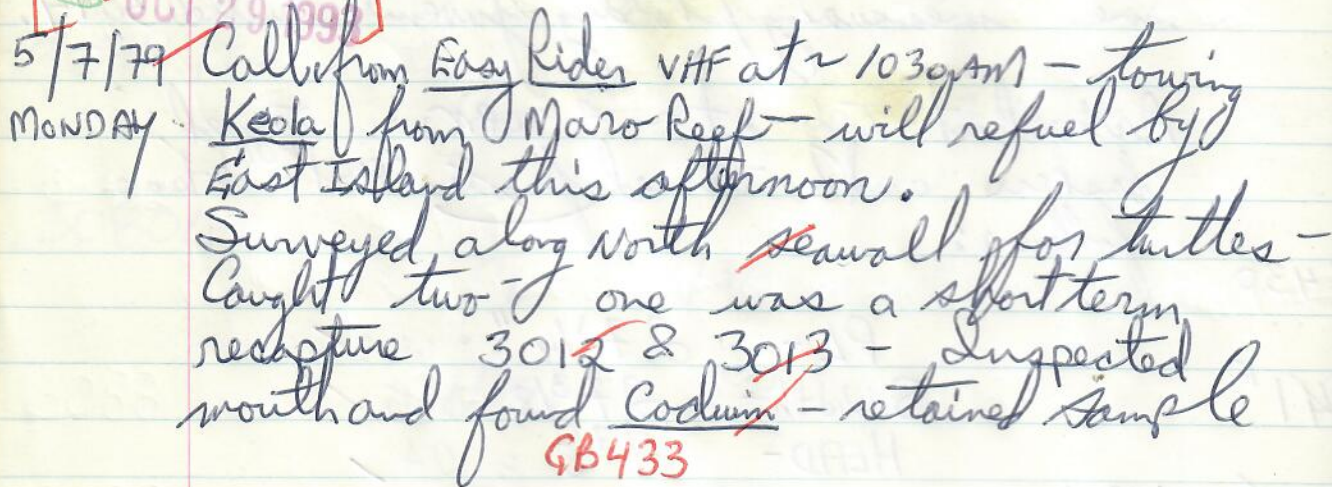 OCT 29 1993
5/7/79 Call from Easy Rider VHF at ~ 1030 AM – towing
MONDAY Keola from Maro Reef – will refuel by
East Island this afternoon.
Surveyed along north seawall for turtles –
Caught two – one was a short term
recapture 3012 & 3013 – Inspected
mouth and found Codium – retained sample
GB433